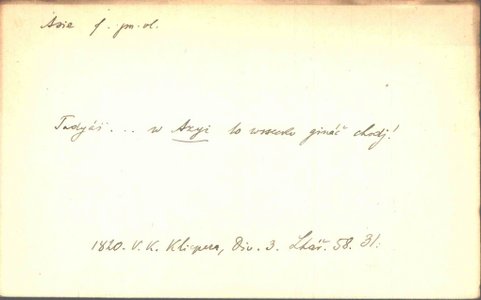 Asie f. pm. vl.
Tadyáš... w Azyi to wssecko gináč chodj!
1820. V. K. Klicpera, Div. 3. Lhář. 58. 31.